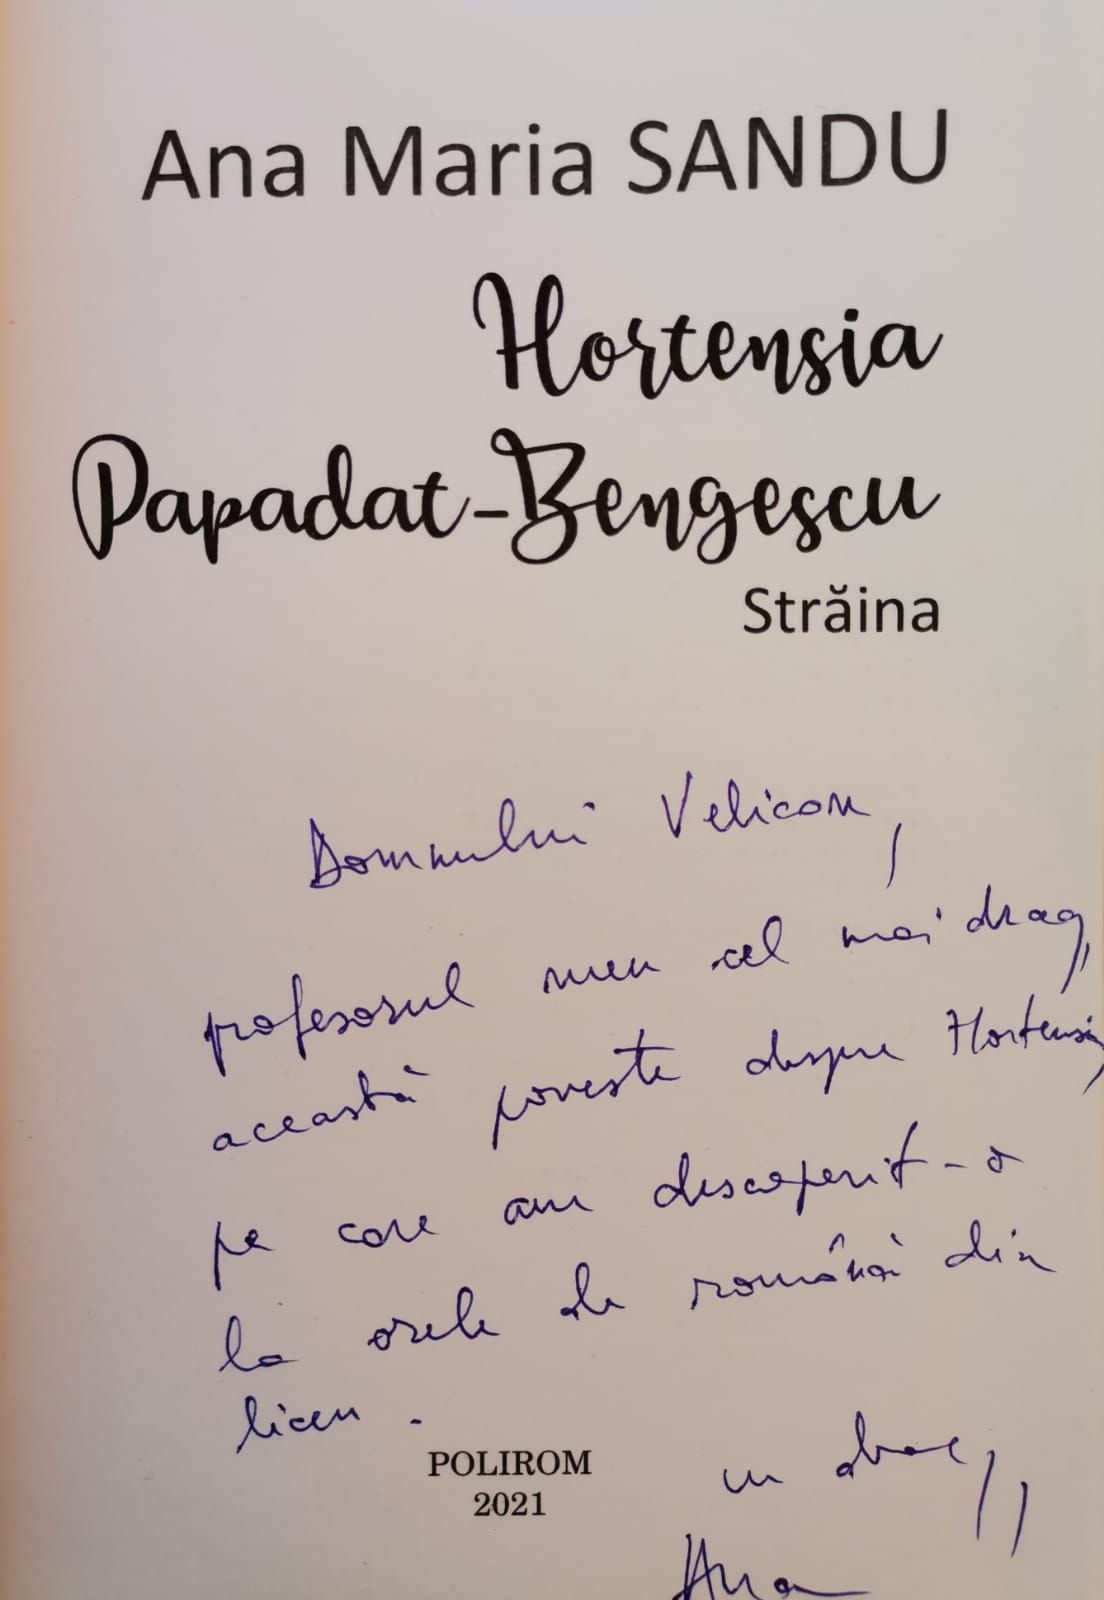 Ana Maria SANDU
Hortensia
Papadat-Bengescu
Străina
Domnului Velican,
profesorul meu cel mai drag,
această poveste despre Hortensia,
pe care am descoperit-o
la orele de română din
liceu.
POLIROM
2021
cu drag,
Ana